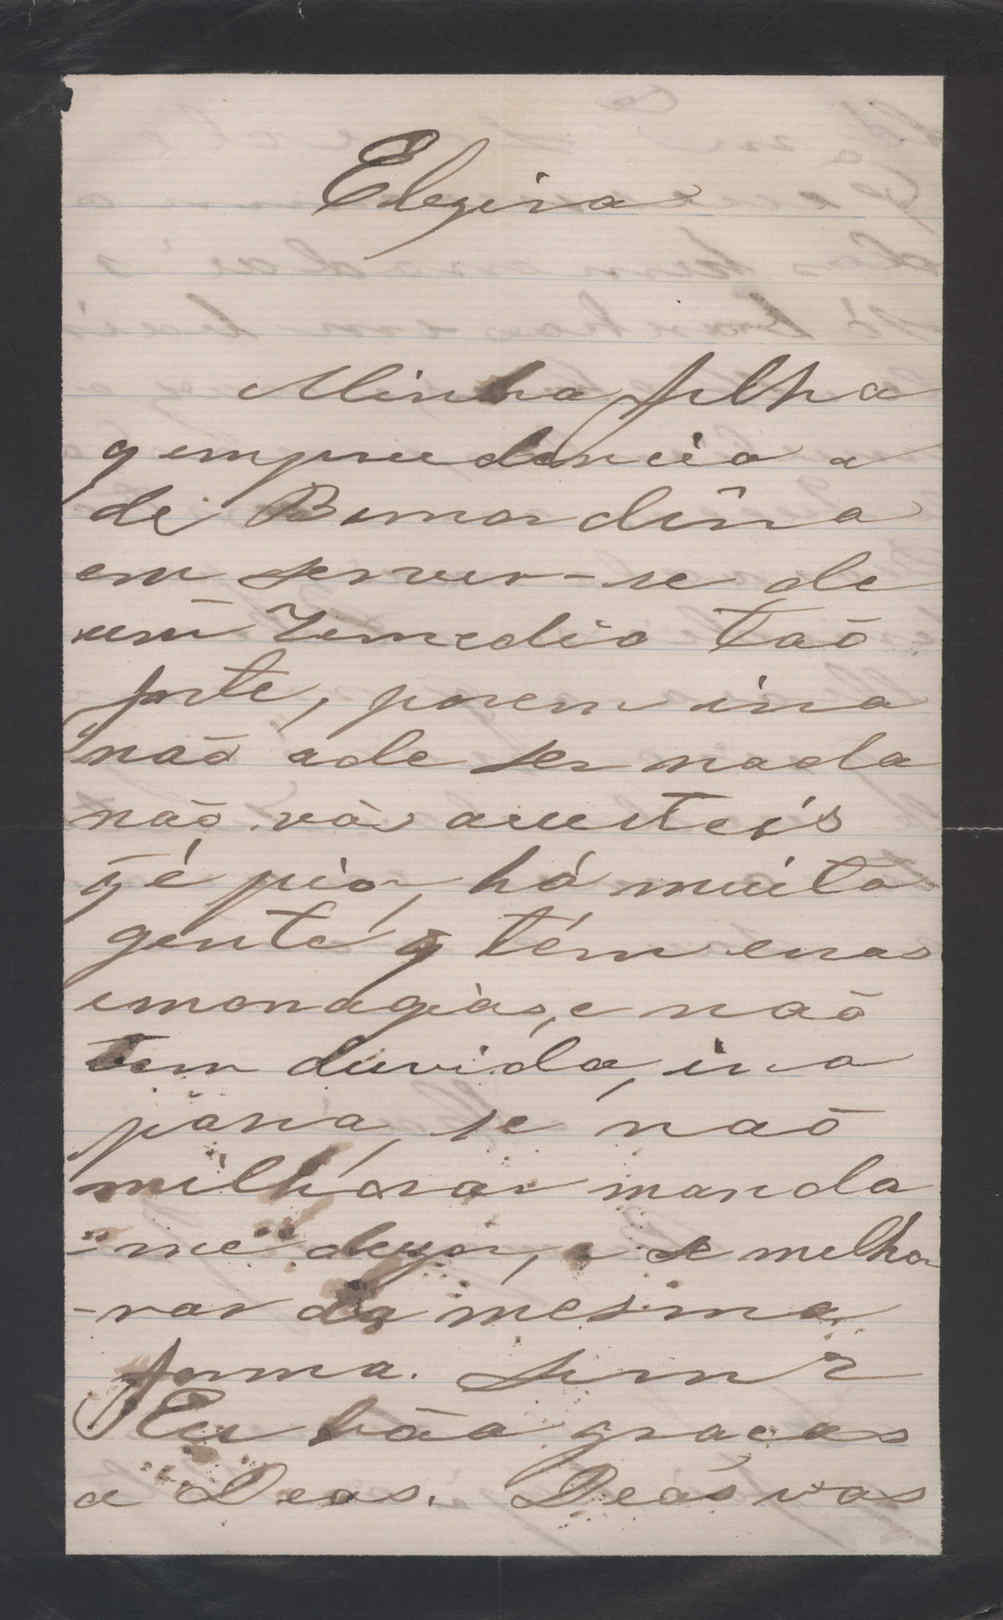 Elzira
Minha filha
q emprudencia a
de Bernardina
em servir-se de
um remedio taõ
forte, porem isso
naõ ade ser nada
naõ vos asusteis
q̃ é pior, há muita
gente q̃ tém essas
emoragias, e naõ
tem duvida, isso
pasa, se naõ
milhorar manda
-me dizer, e se melho
-rar da mesma
forma. Sim?
Eu bôa graças
a Deos. Deos vos